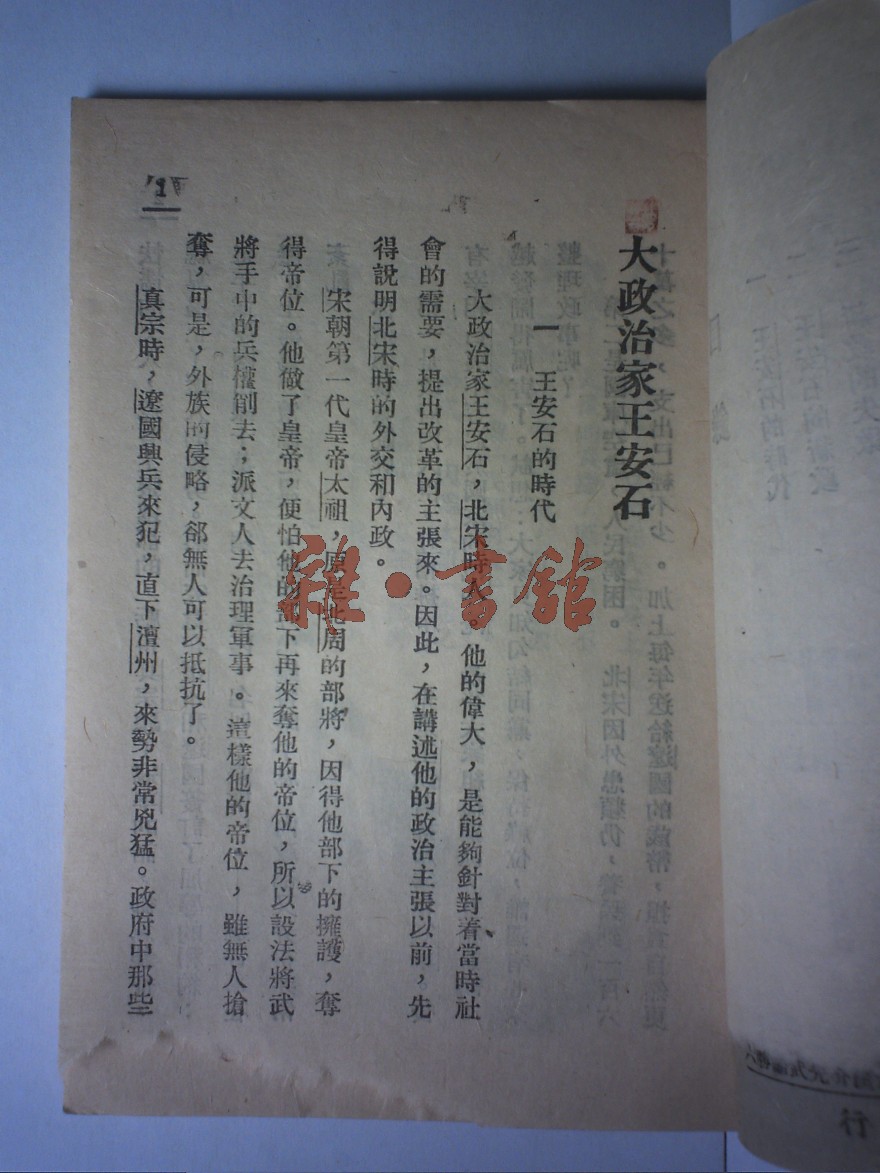 大政治家王安石
一　王安石的時代
大政治家王安石，北宋時人。他的偉大，是能夠針對着當時社
會的需要，提出改革的主張來。因此，在講述他的政治主張以前，先
得說明北宋時的外交和內政。
宋朝第一代皇帝太祖，原是北周的部將，因得他部下的擁護，奪
得帝位。他做了皇帝，便怕他的部下再來奪他的帝位，所以設法將武
將手中的兵權削去；派文人去治理軍事。這樣他的帝位，雖無人搶
奪，可是，外族的侵略，卻無人可以抵抗了。
真宗時，遼國興兵來犯，直下澶州，來勢非常兇猛。政府中那些
1
雜·書館
行